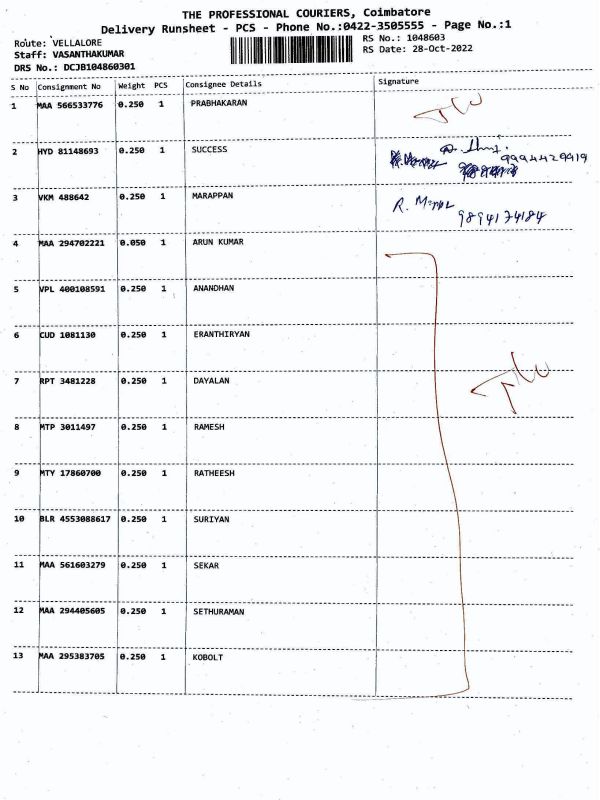 THE PROFESSIONAL COURIERS, Coimbatore
Delivery Runsheet - PCS - Phone No.:0422-3505555 - Page No.:1
Route: VELLALORE
Staff: VASANTHAKUMAR
DRS No.: DCJB104860301
RS No.: 1048603
RS Date: 28-Oct-2022
S No Consignment No Weight PCS Consignee Details Signature
1 MAA 566533776 0.250 1 PRABHAKARAN
2 HYD 81148693 0.250 1 SUCCESS 9994429919
3 VKM 488642 0.250 1 MARAPPAN R.
9894174184
4 MAA 294702221 0.050 1 ARUN KUMAR
5 VPL 400108591 0.250 1 ANANDHAN
6 CUD 1081130 0.250 1 ERANTHIRYAN
7 RPT 3481228 0.250 1 DAYALAN
8 MTP 3011497 0.250 1 RAMESH
9 MTY 17860700 0.250 1 RATHEESH
10 BLR 4553088617 0.250 1 SURIYAN
11 MAA 561603279 0.250 1 SEKAR
12 MAA 294405605 0.250 1 SETHURAMAN
13 MAA 295383705 0.250 1 KOBOLT